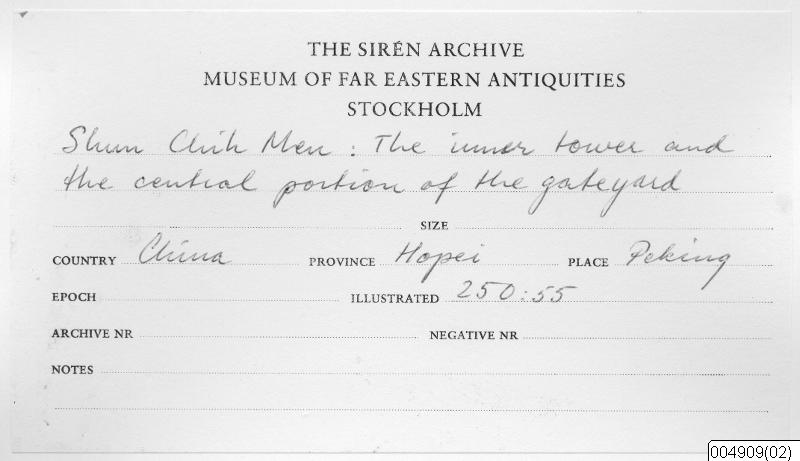 THE SIRÉN ARCHIVE
MUSEUM OF FAR EASTERN ANTIQUITIES
STOCKHOLM
Shun Chih Men : The inner tower and
the central portion of the gateyard
SIZE
COUNTRY China PROVINCE Hopei PLACE Peking
EPOCH ILLUSTRATED 250:55
ARCHIVE NR NEGATIVE NR
NOTES
004909(02)